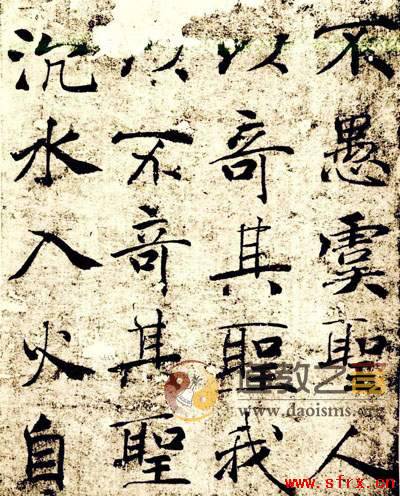 不愚虞聖人
以竒其聖我
以不竒其聖
沉水入火自
道教之音
www.daoisms.org
www.sfrx.cn